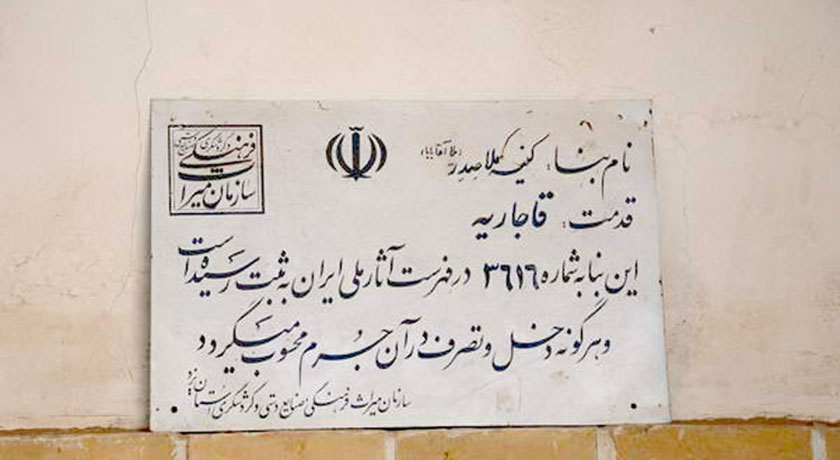 نام بنا: کنیسه ملاصدر (ملا آقا بابا)
قدمت: قاجاریه
این بنا به شماره ۳۶۱۶ در فهرست آثار ملی ایران به ثبت رسیده است
و هر گونه دخل و تصرف در آن جرم محسوب میگردد
سازمان میراث فرهنگی، صنایع دستی و گردشگری استان یزد
سازمان میراث فرهنگی
صنایع دستی و گردشگری